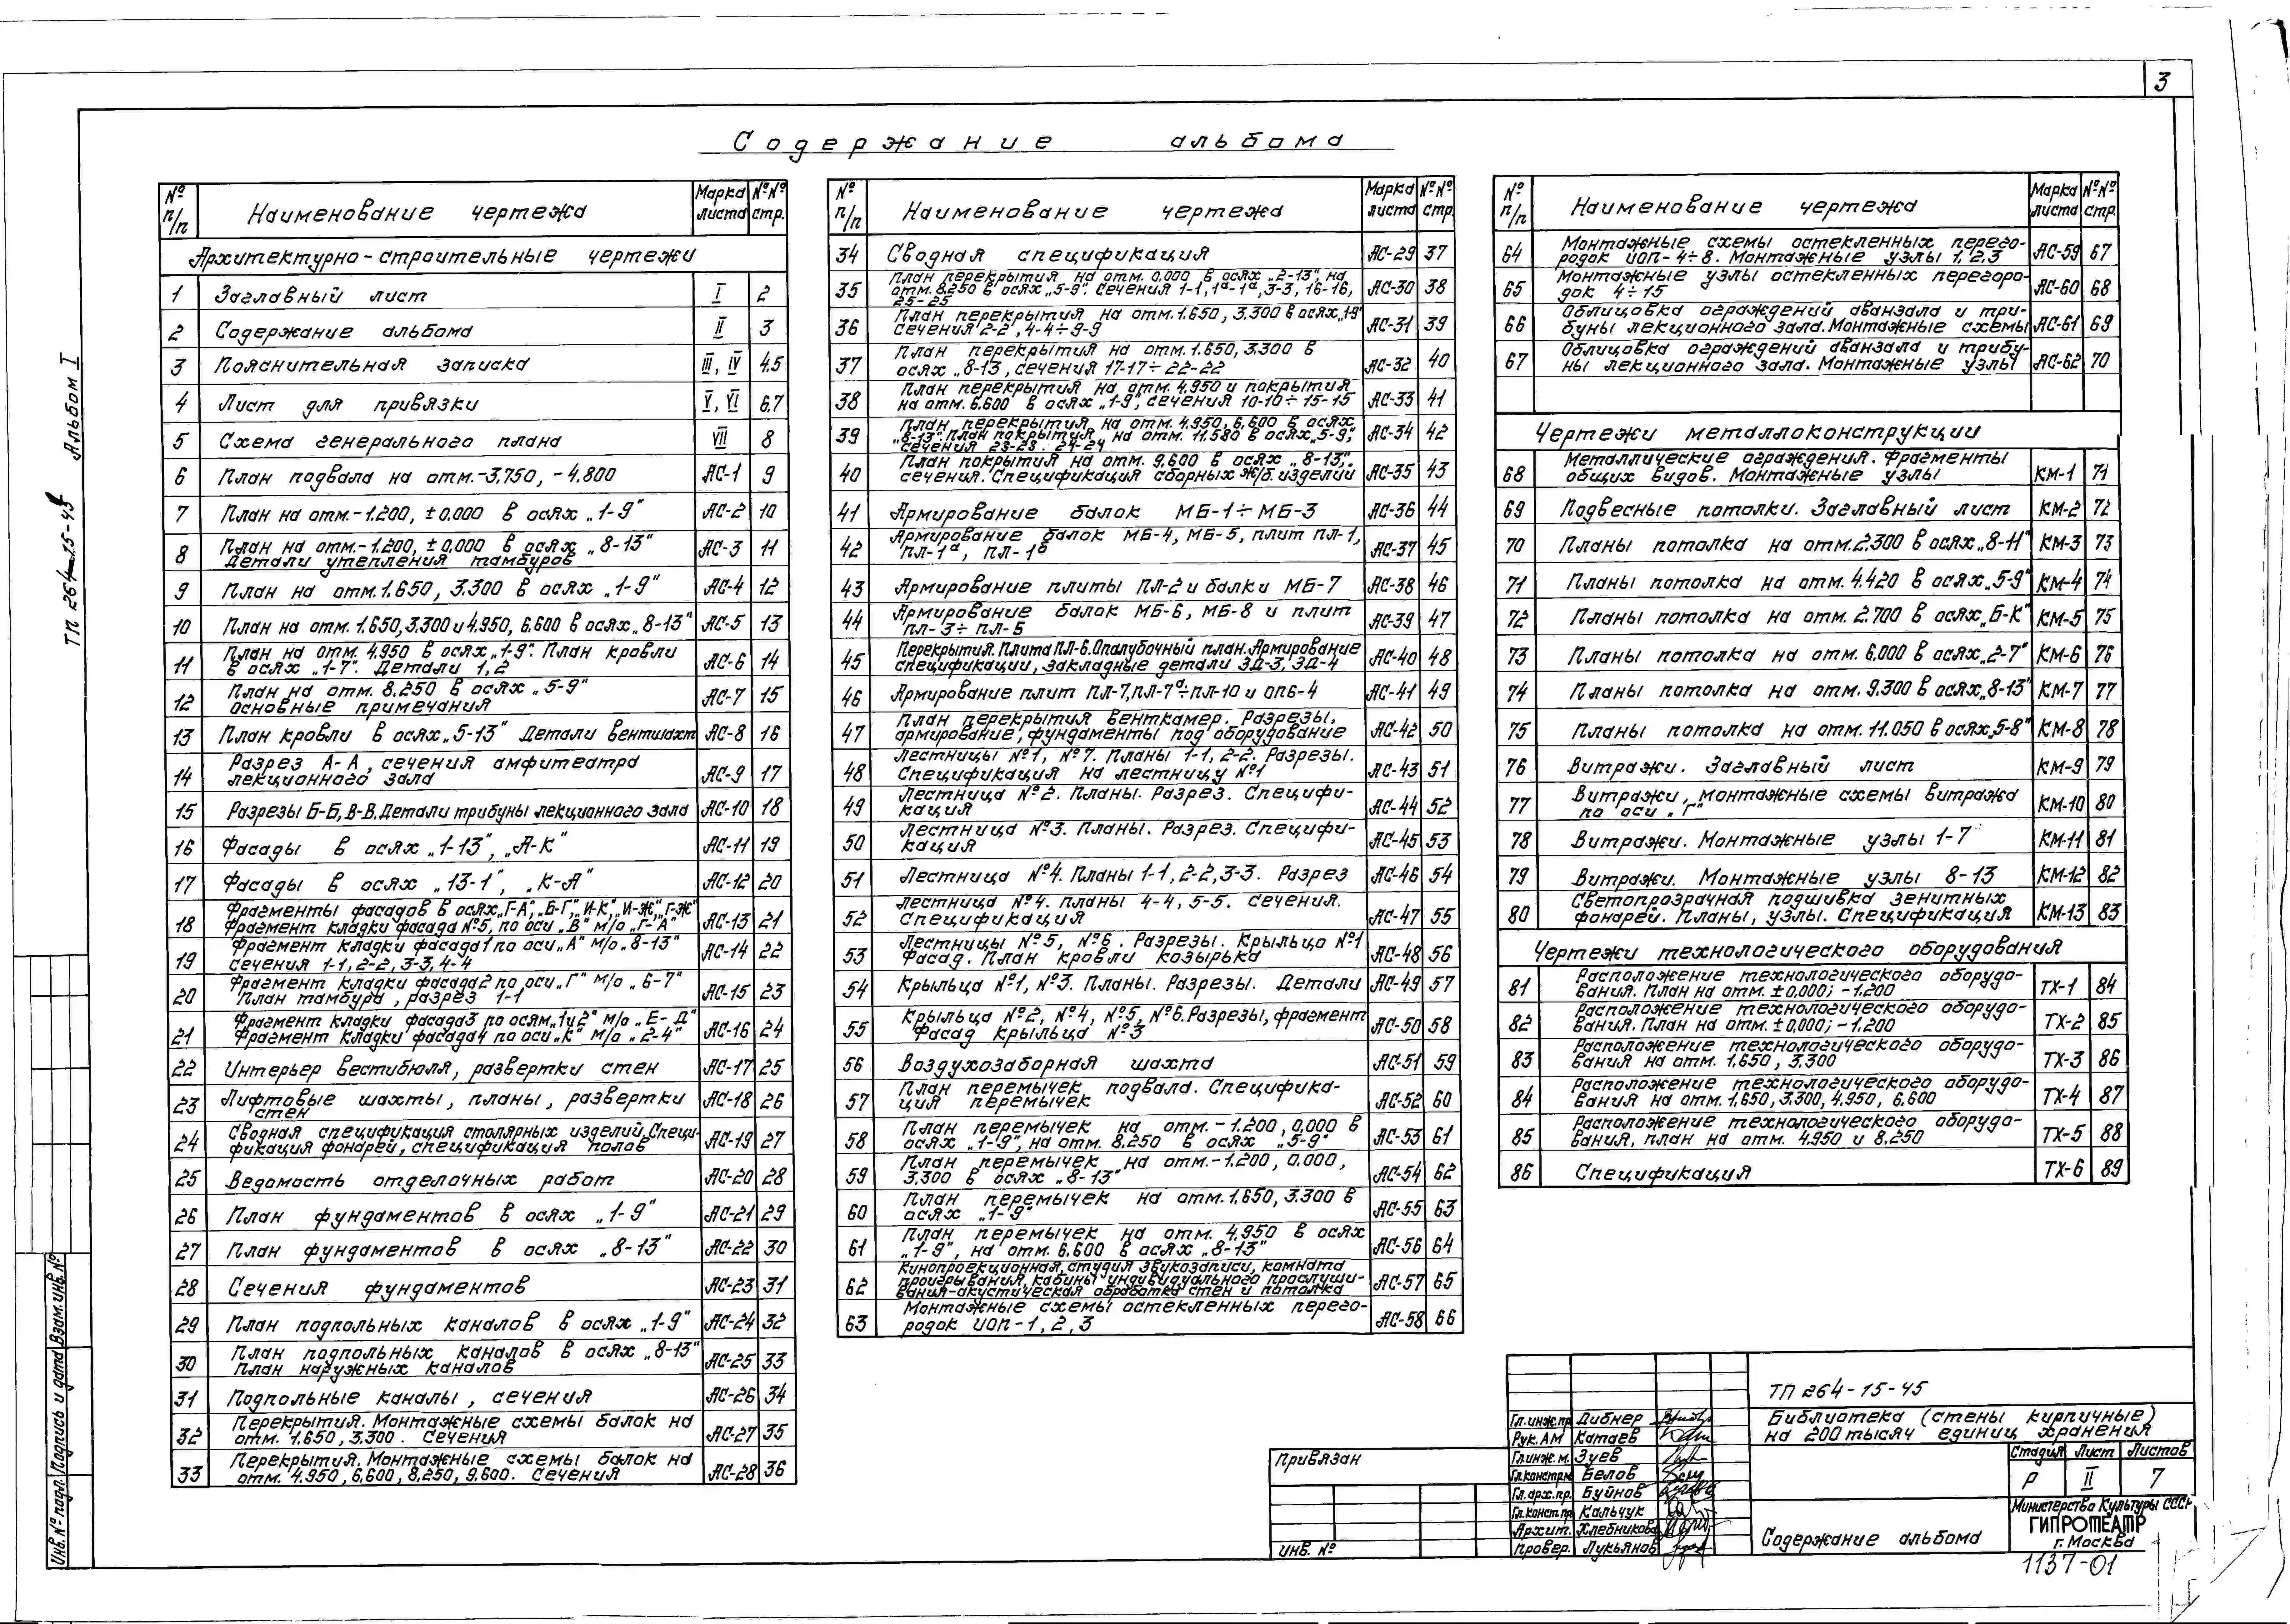 3
Содержание альбома
ТП 264-15-45 Альбом I
№ п/п Наименование чертежа Марка листа №№ стр.
Архитектурно-строительные чертежи
1 Заглавный лист I 2
2 Содержание альбома II 3
3 Пояснительная записка III, IV 4,5
4 Лист для привязки V, VI 6,7
5 Схема генерального плана VII 8
6 План подвала на отм.-3,750, -4,800 АС-1 9
7 План на отм.-1.200, ±0,000 в осях „1-9" АС-2 10
8 План на отм.-1.200, ±0,000 в осях „8-13"
Детали утепления тамбуров АС-3 11
9 План на отм.1.650, 3.300 в осях „1-9" АС-4 12
10 План на отм. 1.650,3.300 и 4.950, 6.600 в осях „8-13" АС-5 13
11 План на отм. 4.950 в осях „1-9". План кровли
в осях „1-7". Детали 1,2 АС-6 14
12 План на отм. 8.250 в осях „5-9"
Основные примечания АС-7 15
13 План кровли в осях „5-13" Детали вентшахт АС-8 16
14 Разрез А-А, сечения амфитеатра
лекционного зала АС-9 17
15 Разрезы Б-Б, В-В. Детали трибуны лекционного зала АС-10 18
16 Фасады в осях „1-13", „А-К" АС-11 19
17 Фасады в осях „13-1", „К-А" АС-12 20
18 Фрагменты фасадов в осях „Г-А", „Б-Г", „И-К", „И-Ж", „Г-Ж"
Фрагмент кладки фасада №5, по оси „В" м/о „Г-А" АС-13 21
19 Фрагмент кладки фасада 1 по оси „А" м/о „8-13"
Сечения 1-1, 2-2, 3-3, 4-4 АС-14 22
20 Фрагмент кладки фасада 2 по оси „Г" м/о „6-7"
План тамбура, разрез 1-1 АС-15 23
21 Фрагмент кладки фасада 3 по осям „1 и 2" м/о „Е-Д"
Фрагмент кладки фасада 4 по оси „К" м/о „2-4" АС-16 24
22 Интерьер вестибюля, развертки стен АС-17 25
23 Лифтовые шахты, планы, развертки
стен АС-18 26
24 Сводная спецификация столярных изделий. Специ-
фикация фонарей, спецификация полов АС-19 27
25 Ведомость отделочных работ АС-20 28
26 План фундаментов в осях „1-9" АС-21 29
27 План фундаментов в осях „8-13" АС-22 30
28 Сечения фундаментов АС-23 31
29 План подпольных каналов в осях „1-9" АС-24 32
30 План подпольных каналов в осях „8-13"
План наружных каналов АС-25 33
31 Подпольные каналы, сечения АС-26 34
32 Перекрытия. Монтажные схемы балок на
отм. 1.650, 3.300. Сечения АС-27 35
33 Перекрытия. Монтажные схемы балок на
отм. 4.950, 6,600, 8,250, 9,600. Сечения АС-28 36
№ п/п Наименование чертежа Марка листа №№ стр.
34 Сводная спецификация АС-29 37
35 План перекрытия на отм. 0.000 в осях „2-13", на
отм. 8.250 в осях „5-9". Сечения 1-1, 1а-1а, 3-3, 16-16,
25-25 АС-30 38
36 План перекрытия на отм. 1.650, 3.300 в осях „1-9"
Сечения 2-2, 4-4÷9-9 АС-31 39
37 План перекрытия на отм. 1.650, 3.300 в
осях „8-13, сечения 17-17÷22-22 АС-32 40
38 План перекрытия на отм. 4.950 и покрытия
на отм. 6.600 в осях „1-9", сечения 10-10÷15-15 АС-33 41
39 План перекрытия на отм. 4.950, 6.600 в осях
„8-13". План покрытия на отм. 11.580 в осях „5-9",
сечения 23-23. 24-24 АС-34 42
40 План покрытия на отм. 9.600 в осях „8-13",
сечения. Спецификация сборных ж/б. изделий АС-35 43
41 Армирование балок МБ-1÷МБ-3 АС-36 44
42 Армирование балок МБ-4, МБ-5, плит ПЛ-1,
ПЛ-1а, ПЛ-1б АС-37 45
43 Армирование плиты ПЛ-2 и балки МБ-7 АС-38 46
44 Армирование балок МБ-6, МБ-8 и плит
ПЛ-3÷ПЛ-5 АС-39 47
45 Перекрытия. Плита ПЛ-6. Опалубочный план. Армирование
спецификации, закладные детали ЗД-3, ЗД-4 АС-40 48
46 Армирование плит ПЛ-7, ПЛ-7а÷ПЛ-10 и ОПБ-4 АС-41 49
47 План перекрытия венткамер. Разрезы,
армирование, фундаменты под оборудование АС-42 50
48 Лестницы №1, №7. Планы 1-1, 2-2. Разрезы.
Спецификация на лестницу №1 АС-43 51
49 Лестница №2. Планы. Разрез. Специфи-
кация АС-44 52
50 Лестница №3. Планы. Разрез. Специфи-
кация АС-45 53
51 Лестница №4. Планы 1-1, 2-2, 3-3. Разрез АС-46 54
52 Лестница №4. планы 4-4, 5-5. Сечения.
Спецификация АС-47 55
53 Лестницы №5, №6. Разрезы. Крыльцо №1
Фасад. План кровли козырька АС-48 56
54 Крыльца №1, №3. Планы. Разрезы. Детали АС-49 57
55 Крыльца №2, №4, №5, №6. Разрезы, фрагмент
Фасад крыльца №3 АС-50 58
56 Воздухозаборная шахта АС-51 59
57 План перемычек подвала. Специфика-
ция перемычек АС-52 60
58 План перемычек на отм. -1.200, 0,000 в
осях „1-9", на отм. 8.250 в осях „5-9" АС-53 61
59 План перемычек на отм.-1.200, 0.000,
3.300 в осях „8-13" АС-54 62
60 План перемычек на отм. 1.650, 3.300 в
осях „1-9" АС-55 63
61 План перемычек на отм. 4.950 в осях
„1-9", на отм. 6.600 в осях „8-13" АС-56 64
62 Кинопроекционная, студия звукозаписи, комната
проигрывания, кабины индивидуального прослуши-
вания-акустическая обработка стен и потолка АС-57 65
63 Монтажные схемы остекленных перего-
родок ИОП-1, 2, 3 АС-58 66
№ п/п Наименование чертежа Марка листа №№ стр.
64 Монтажные схемы остекленных перего-
родок ИОП-4÷8. Монтажные узлы 1, 2,3 АС-59 67
65 Монтажные узлы остекленных перегоро-
док 4÷15 АС-60 68
66 Облицовка ограждений аванзала и три-
буны лекционного зала. Монтажные схемы АС-61 69
67 Облицовка ограждений аванзала и трибу-
ны лекционного зала. Монтажные узлы АС-62 70
Чертежи металлоконструкции
68 Металлические ограждения. Фрагменты
общих видов. Монтажные узлы КМ-1 71
69 Подвесные потолки. Заглавный лист КМ-2 72
70 Планы потолка на отм.2.300 в осях „8-11" КМ-3 73
71 Планы потолка на отм. 4.420 в осях „5-9" КМ-4 74
72 Планы потолка на отм. 2.700 в осях „Б-К" КМ-5 75
73 Планы потолка на отм. 6.000 в осях „2-7" КМ-6 76
74 Планы потолка на отм. 9.300 в осях „8-13" КМ-7 77
75 Планы потолка на отм. 11.050 в осях „5-8" КМ-8 78
76 Витражи. Заглавный лист КМ-9 79
77 Витражи, монтажные схемы витража
по оси „Г" КМ-10 80
78 Витражи. Монтажные узлы 1-7 КМ-11 81
79 Витражи. Монтажные узлы 8-13 КМ-12 82
80 Светопрозрачная подшивка зенитных
фонарей. Планы, узлы. Спецификация КМ-13 83
Чертежи технологического оборудования
81 Расположение технологического оборудо-
вания. План на отм. ±0,000; -1.200 ТХ-1 84
82 Расположение технологического оборудо-
вания. План на отм. ±0,000; -1.200 ТХ-2 85
83 Расположение технологического оборудо-
вания на отм. 1.650, 3.300 ТХ-3 86
84 Расположение технологического оборудо-
вания на отм. 1.650, 3.300, 4.950, 6.600 ТХ-4 87
85 Расположение технологического оборудо-
вания, план на отм. 4.950 и 8.250 ТХ-5 88
86 Спецификация ТХ-6 89
Инв.№подл. Подпись и дата Взам.инв.№
Привязан
Инв. №
Гл.инж.пр. Дибнер
Рук.АМ Катаев
Гл.инж.м. Зуев
Гл.констр.м. Белов
Гл.арх.пр. Буйнов
Гл.конст.пр. Кальчук
Архит. Хлебникова
Провер. Лукьянов
ТП 264-15-45
Библиотека (стены кирпичные)
на 200 тысяч единиц хранения
Стадия Лист Листов
Р II 7
Содержание альбома
Министерства Культуры СССР
ГИПРОТЕАТР
г. Москва
1137-01